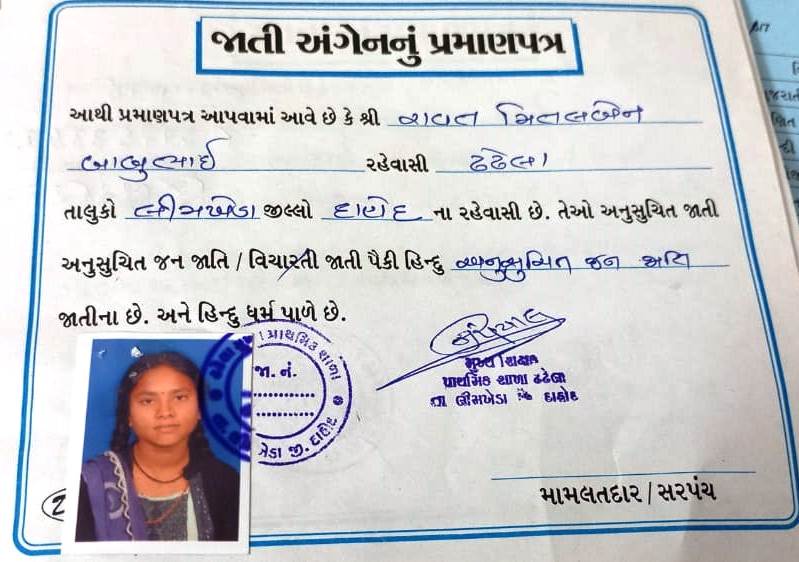 જાતી અંગેનનું પ્રમાણપત્ર
આથી પ્રમાણપત્ર આપવામાં આવે છે કે શ્રી રાવત મિતલબેન
બાબુભાઈ રહેવાસી ઢઢેલા
તાલુકો લીમખેડા જીલ્લો દાહોદ ના રહેવાસી છે. તેઓ અનુસુચિત જાતી
અનુસુચિત જન જાતિ / વિચારતી જાતી પૈકી હિન્દુ અનુસુચિત જન જાતિ
જાતીના છે. અને હિન્દુ ધર્મ પાળે છે.
પ્રાથમિક શાળા
જા. નં.
જી. દાહોદ
મુખ્ય શિક્ષક
પ્રાથમિક શાળા ઢઢેલા
તા લીમખેડા જિ દાહોદ
મામલતદાર / સરપંચ
2